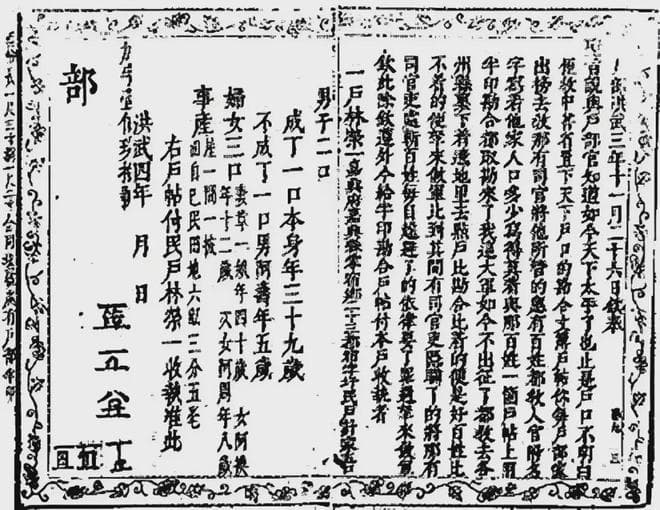 洪武三年十一月二十六日欽奉
聖旨說與戶部官知道如今天下太平了也止是戶口不明白
俚教中書省置下天下戶口的勘合文簿戶帖你每戶部家
出榜去教那有司官將他所管的應有百姓都教入官附名
字寫着他家人口多少寫得真着與那百姓一箇戶帖上用
半印勘合都取勘來了我這大軍如今不出征了都教去各
州縣裏下着遶地里去點戶比勘合比着的便是好百姓比
不着的便拏來做軍比到其間有司官吏隱瞞了的將那有
司官吏處斬百姓每自趓避了的依律要了罪過拏來做軍
欽此除欽遵外今給半印勘合戶帖付本戶收執者
一戶林榮一嘉興府嘉興縣零宿鄉二十三都宿字圩民戶計家五口
男子二口
成丁一口本身年三十九歲
不成丁一口男阿壽年五歲
婦女三口妻章一娘年四十歲 女阿換
年十二歲 次女阿周年八歲
事產屋一間一披
田自己民田地六畝三分五毛
右戶帖付民戶林榮一收執准此
洪武四年 月 日
部